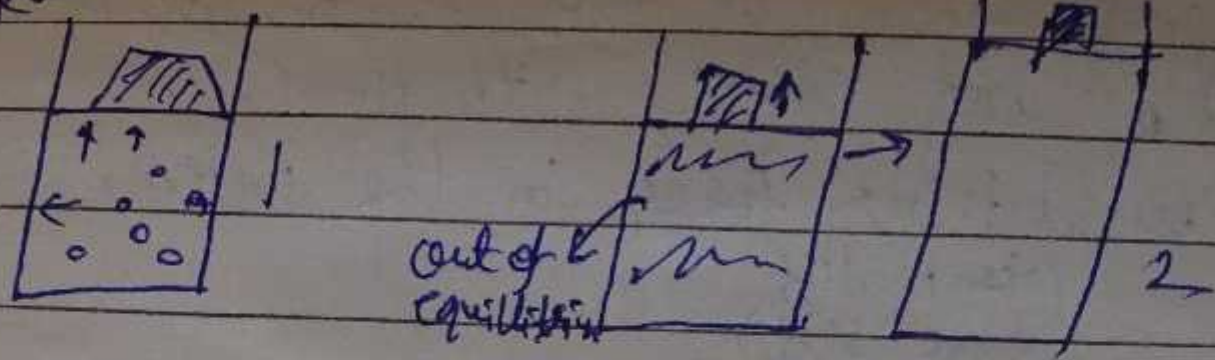 1
out of
equilibrium
2